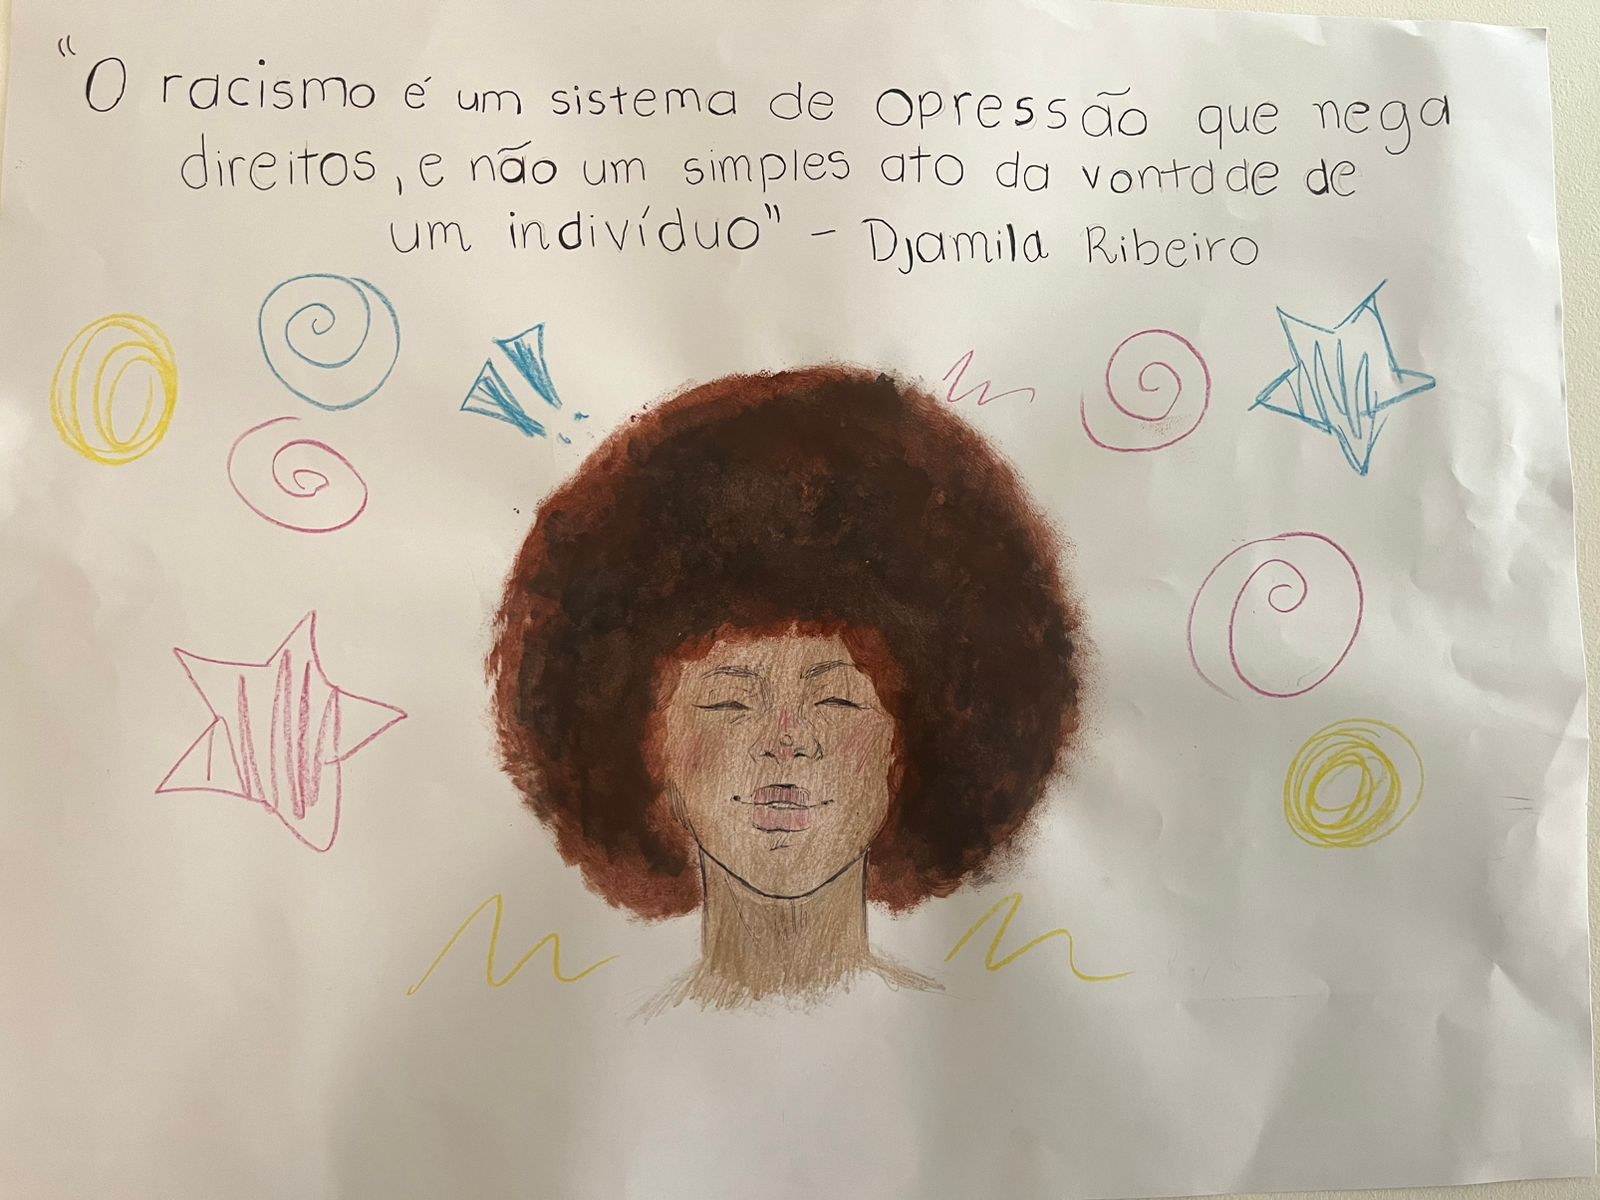 "O racismo é um sistema de opressão que nega
direitos, e não um simples ato da vontade de
um indivíduo" - Djamila Ribeiro